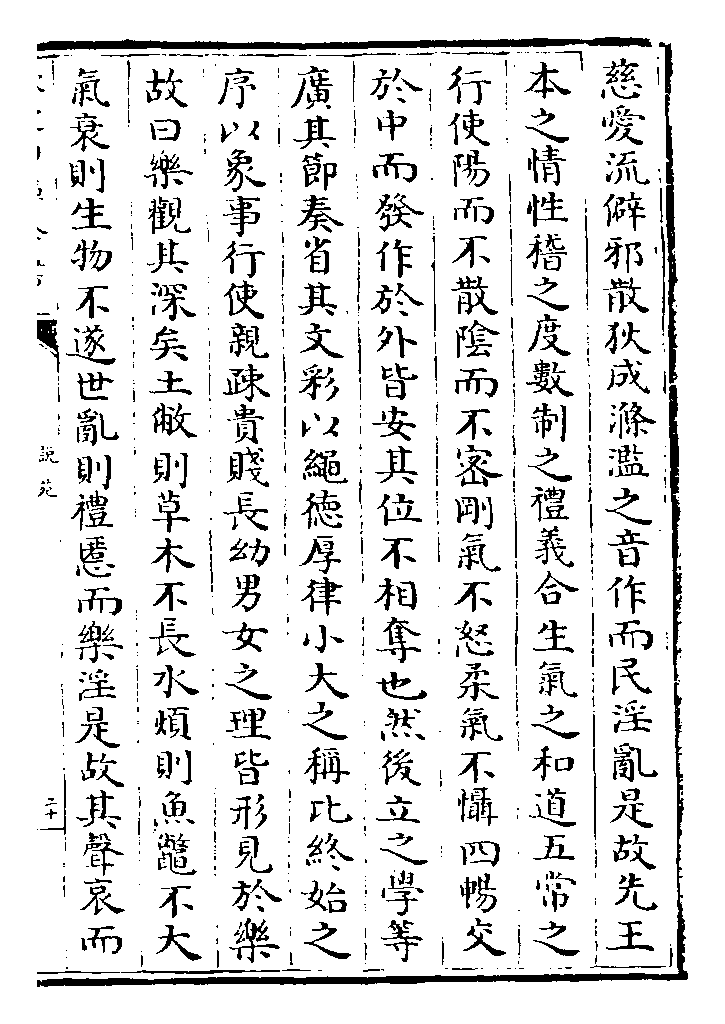 慈愛流僻邪散狄成滌濫之音作而民淫亂是故先王
本之情性稽之度數制之禮義合生氣之和道五常之
行使陽而不散陰而不密剛氣不怒柔氣不懾四暢交
於中而發作於外皆安其位不相奪也然後立之學等
廣其節奏省其文彩以繩德厚律小大之稱比終始之
序以象事行使親疎貴賤長幼男女之理皆形見於樂
故曰樂觀其深矣土敝則草木不長水煩則魚鼈不大
氣衰則生物不遂世亂則禮慝而樂淫是故其聲哀而
說苑
二十